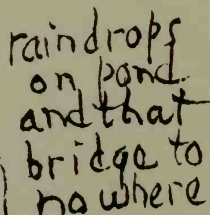 raindrops
on pond
and that
bridge to
nowhere